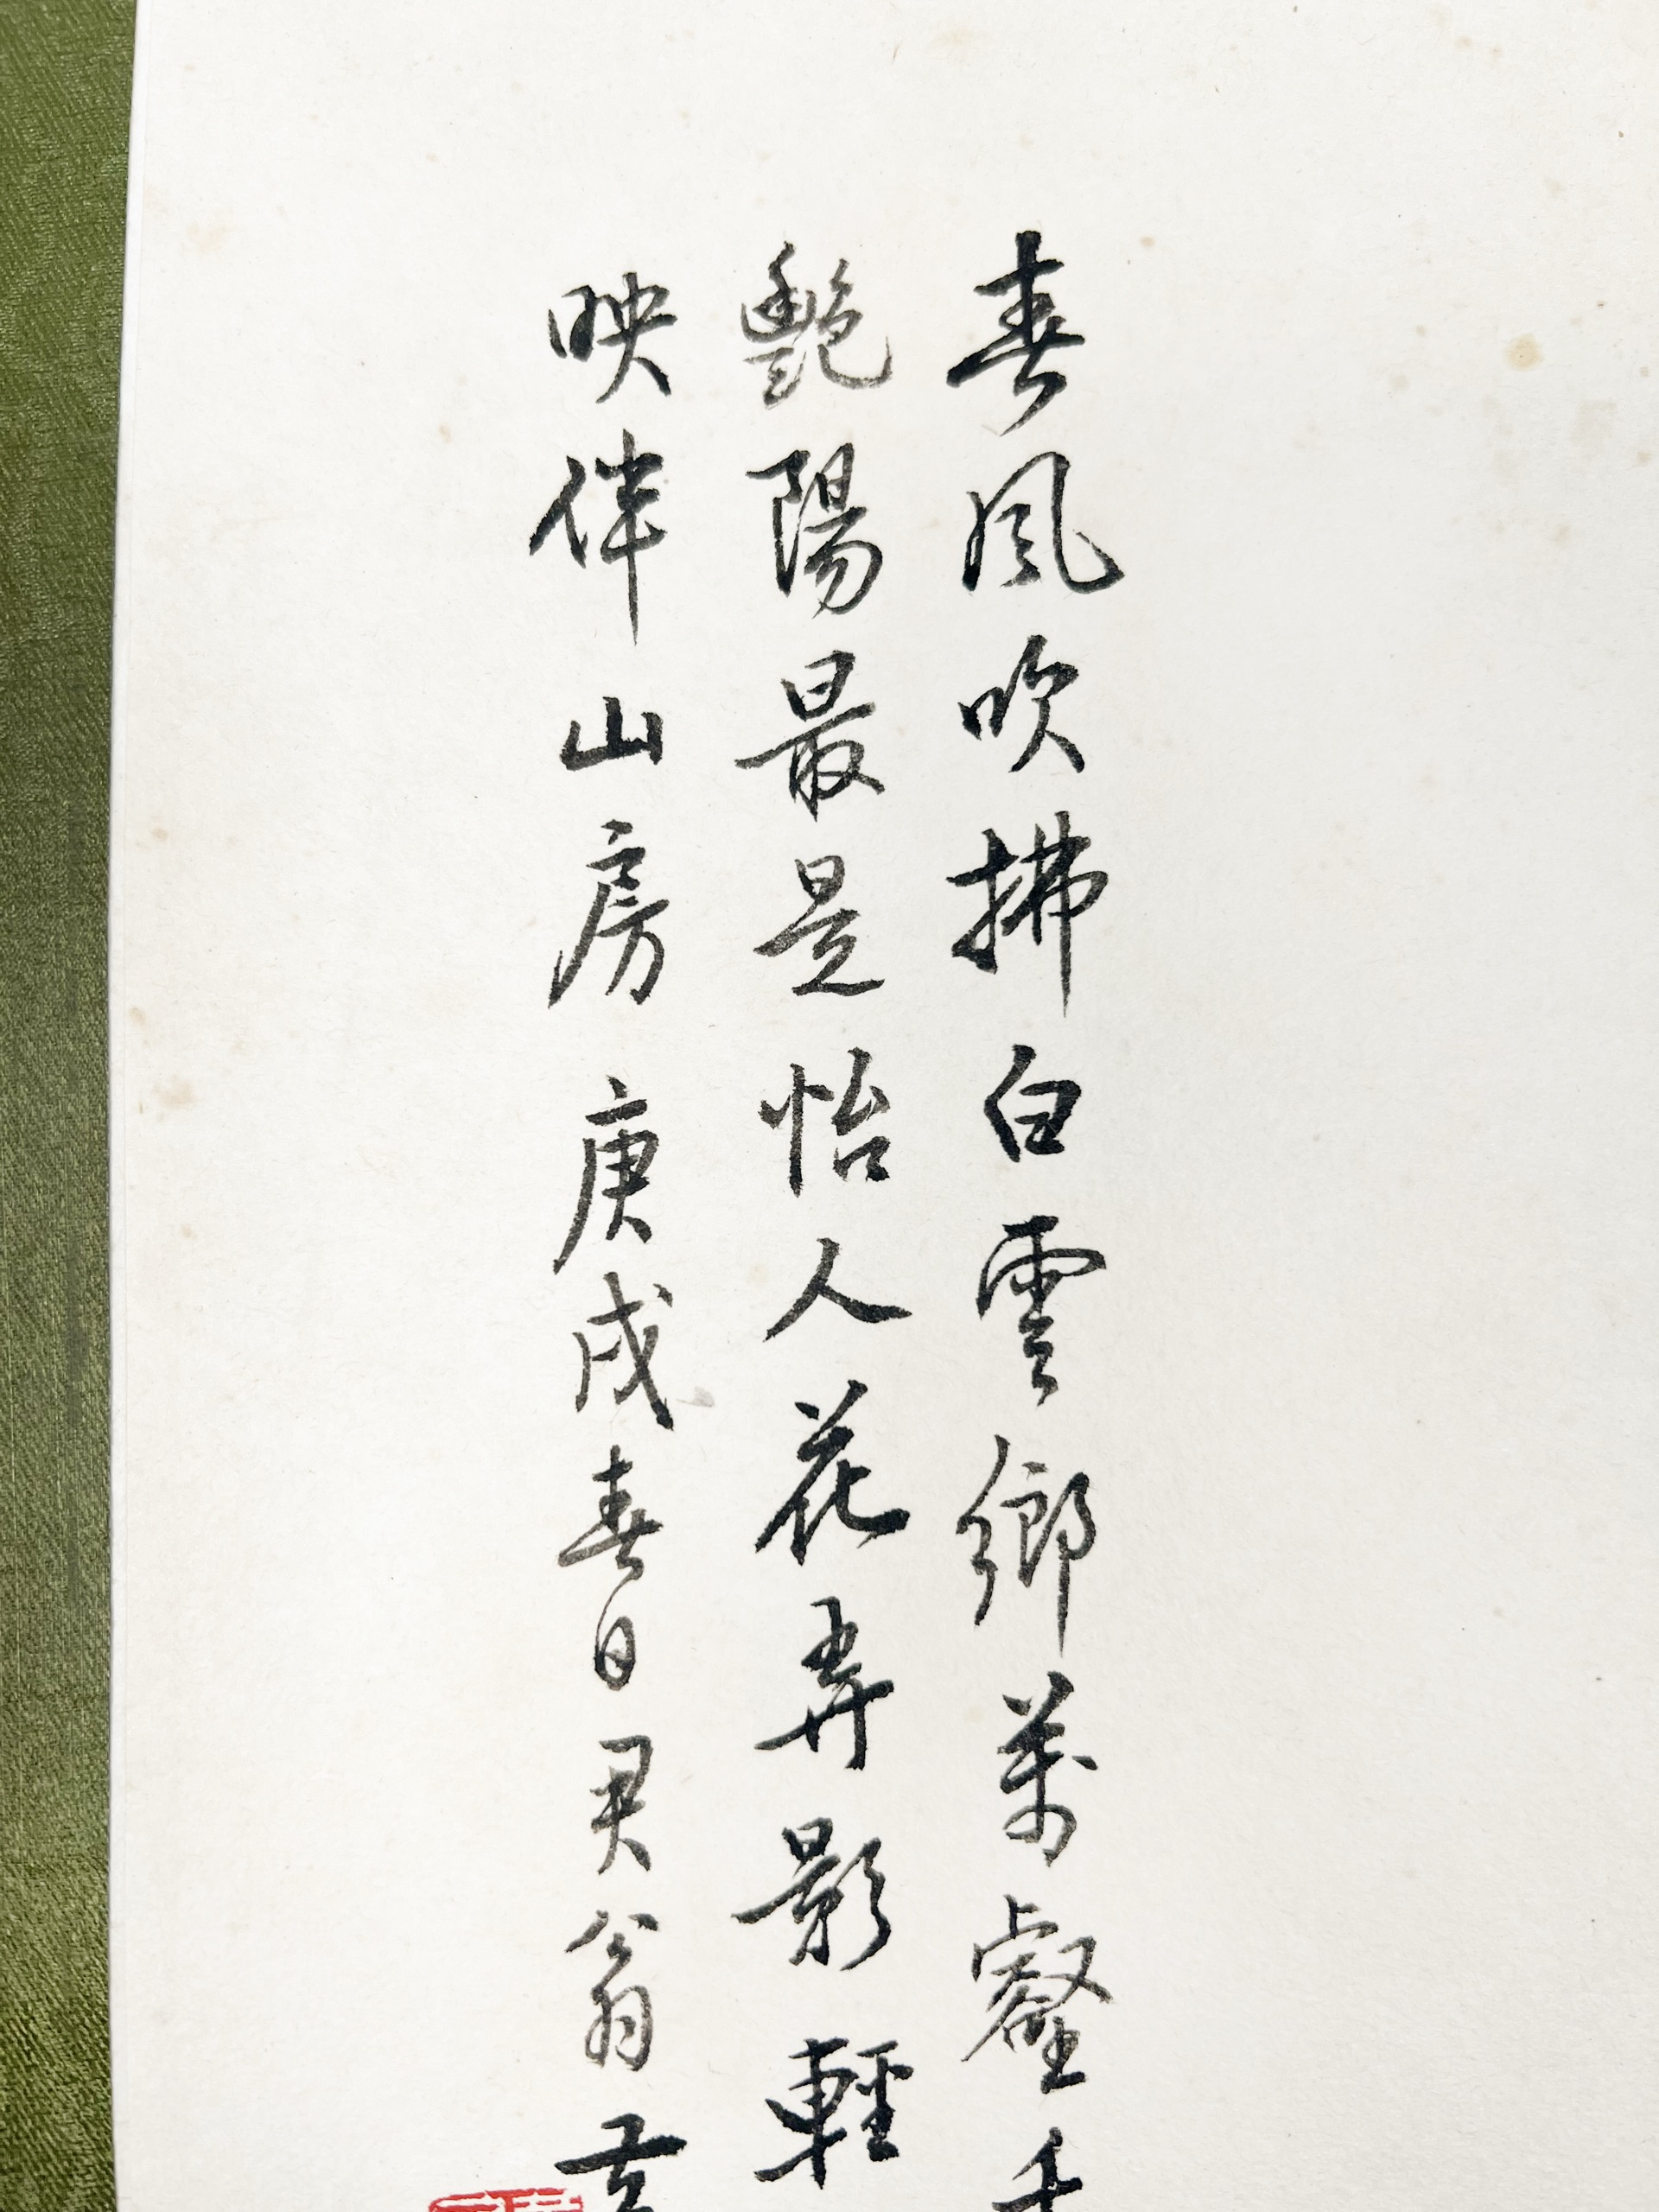 春風吹拂白雲鄉萬壑千
艷陽最是怡人花弄影輕
映伴山房庚戌春日君翁